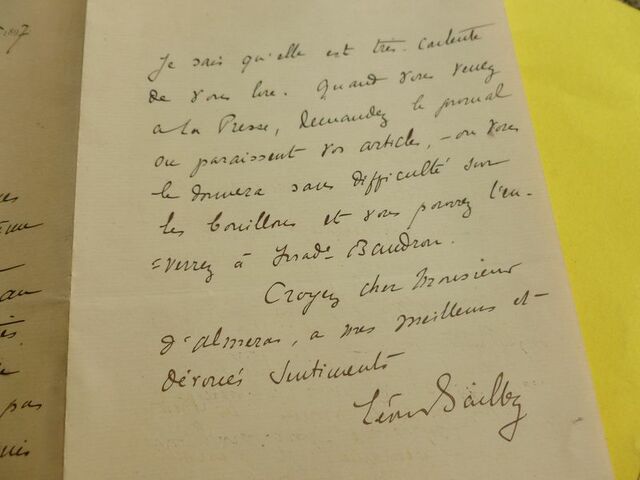 1897
Je sais qu'elle est très contente
de vous lire. Quand vous venez
a La Presse, demandez le journal
ou paraissent vos articles, - on vous
le donnera sans difficulté sur
les bouillons et vous pourrez l'en-
=verrez à Mad^e Baudron.
Croyez cher Monsieur
d'Almeras, a mes meilleurs et
dévoués sentiments
Léon Bailby
pas